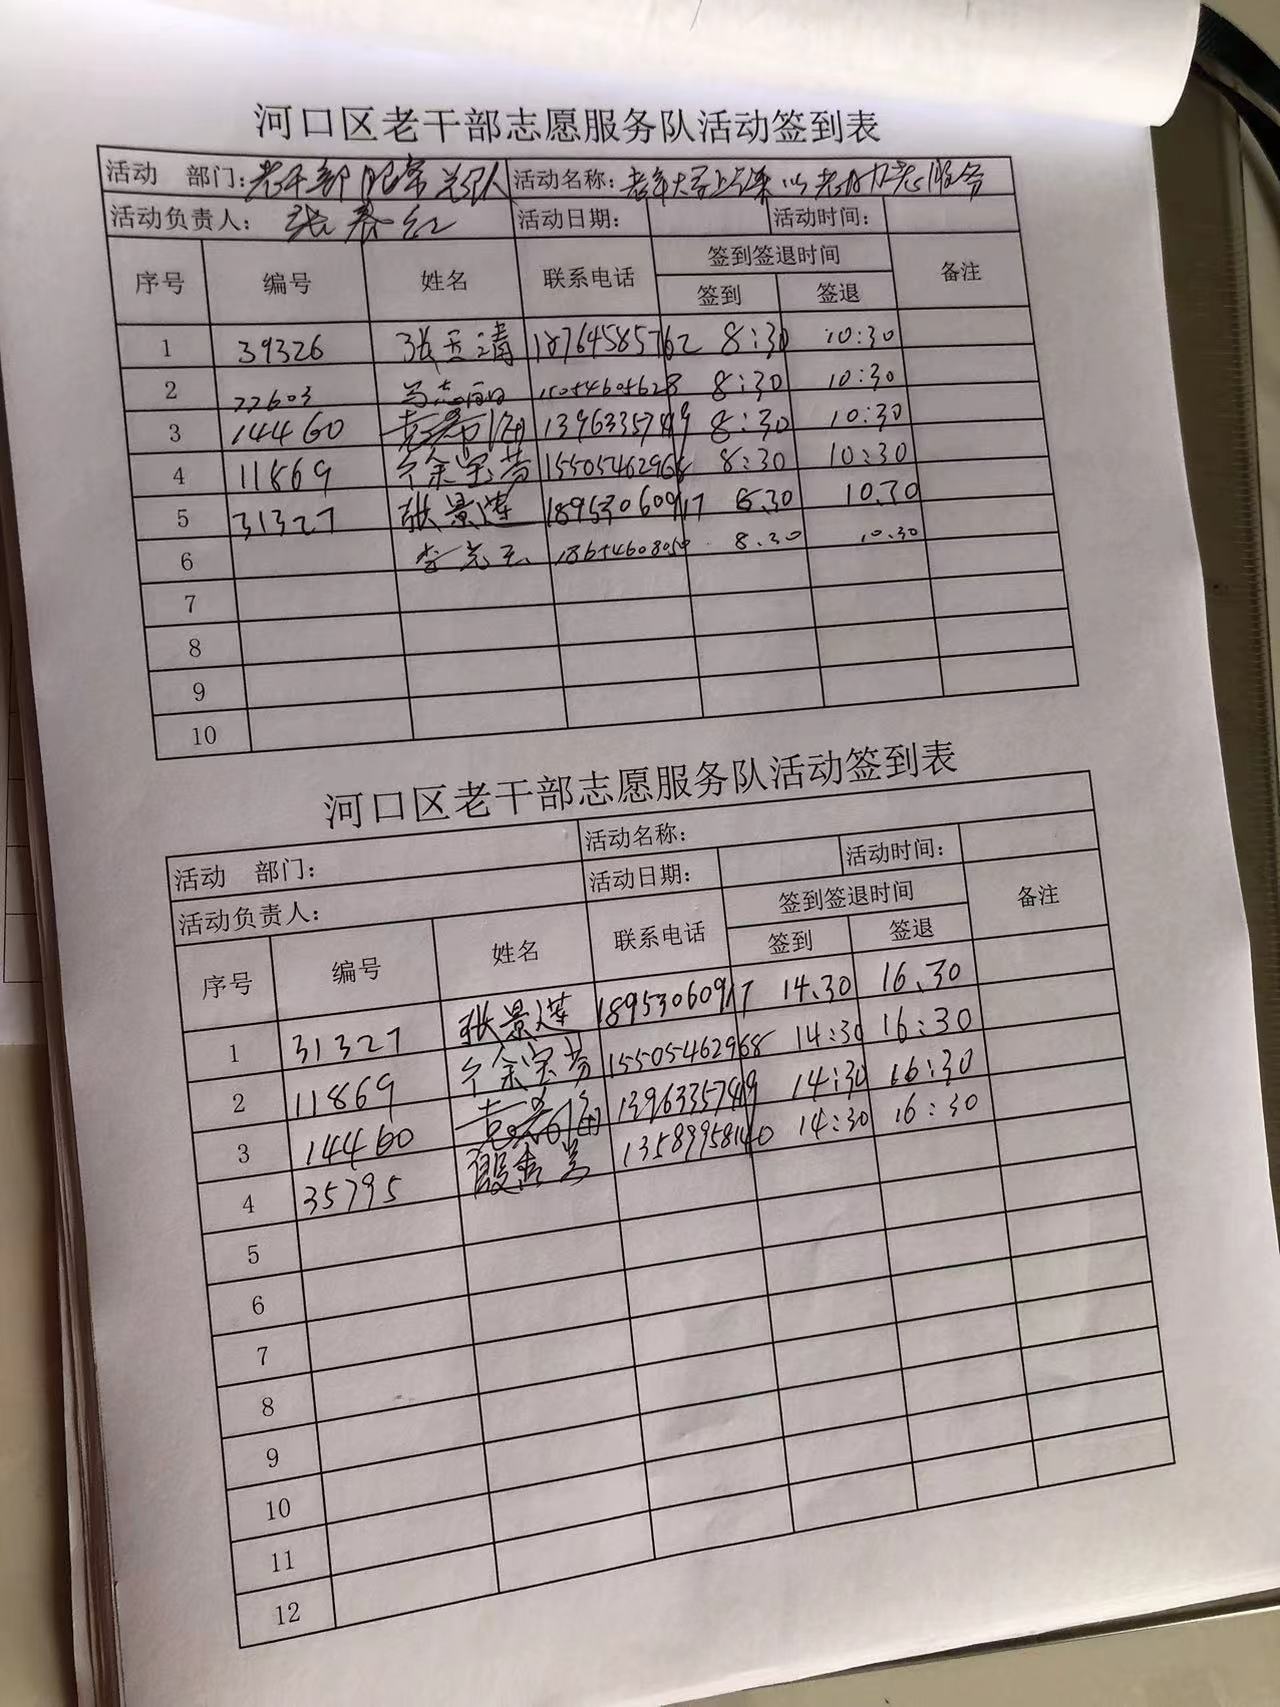 河口区老干部志愿服务队活动签到表
活动 部门: 老干部 活动名称: 老年大学上课 服务
活动负责人: 张春红 活动日期: 活动时间:
序号 编号 姓名 联系电话 签到签退时间 备注
签到 签退
1 39326 张玉清 18764585762 8:30 10:30
2 22603 15054605628 8:30 10:30
3 14460 13963357419 8:30 10:30
4 11869 徐宝芳 15505462968 8:30 10:30
5 31327 张景莲 18953060917 8.30 10.30
6 8.30 10.30
7
8
9
10
河口区老干部志愿服务队活动签到表
活动 部门: 活动名称:
活动负责人: 活动日期: 活动时间:
序号 编号 姓名 联系电话 签到签退时间 备注
签到 签退
1 31327 张景莲 18953060917 14.30 16.30
2 11869 徐宝芳 15505462968 14:30 16:30
3 14460 13963357419 14:30 16:30
4 35795 13589958140 14:30 16:30
5
6
7
8
9
10
11
12